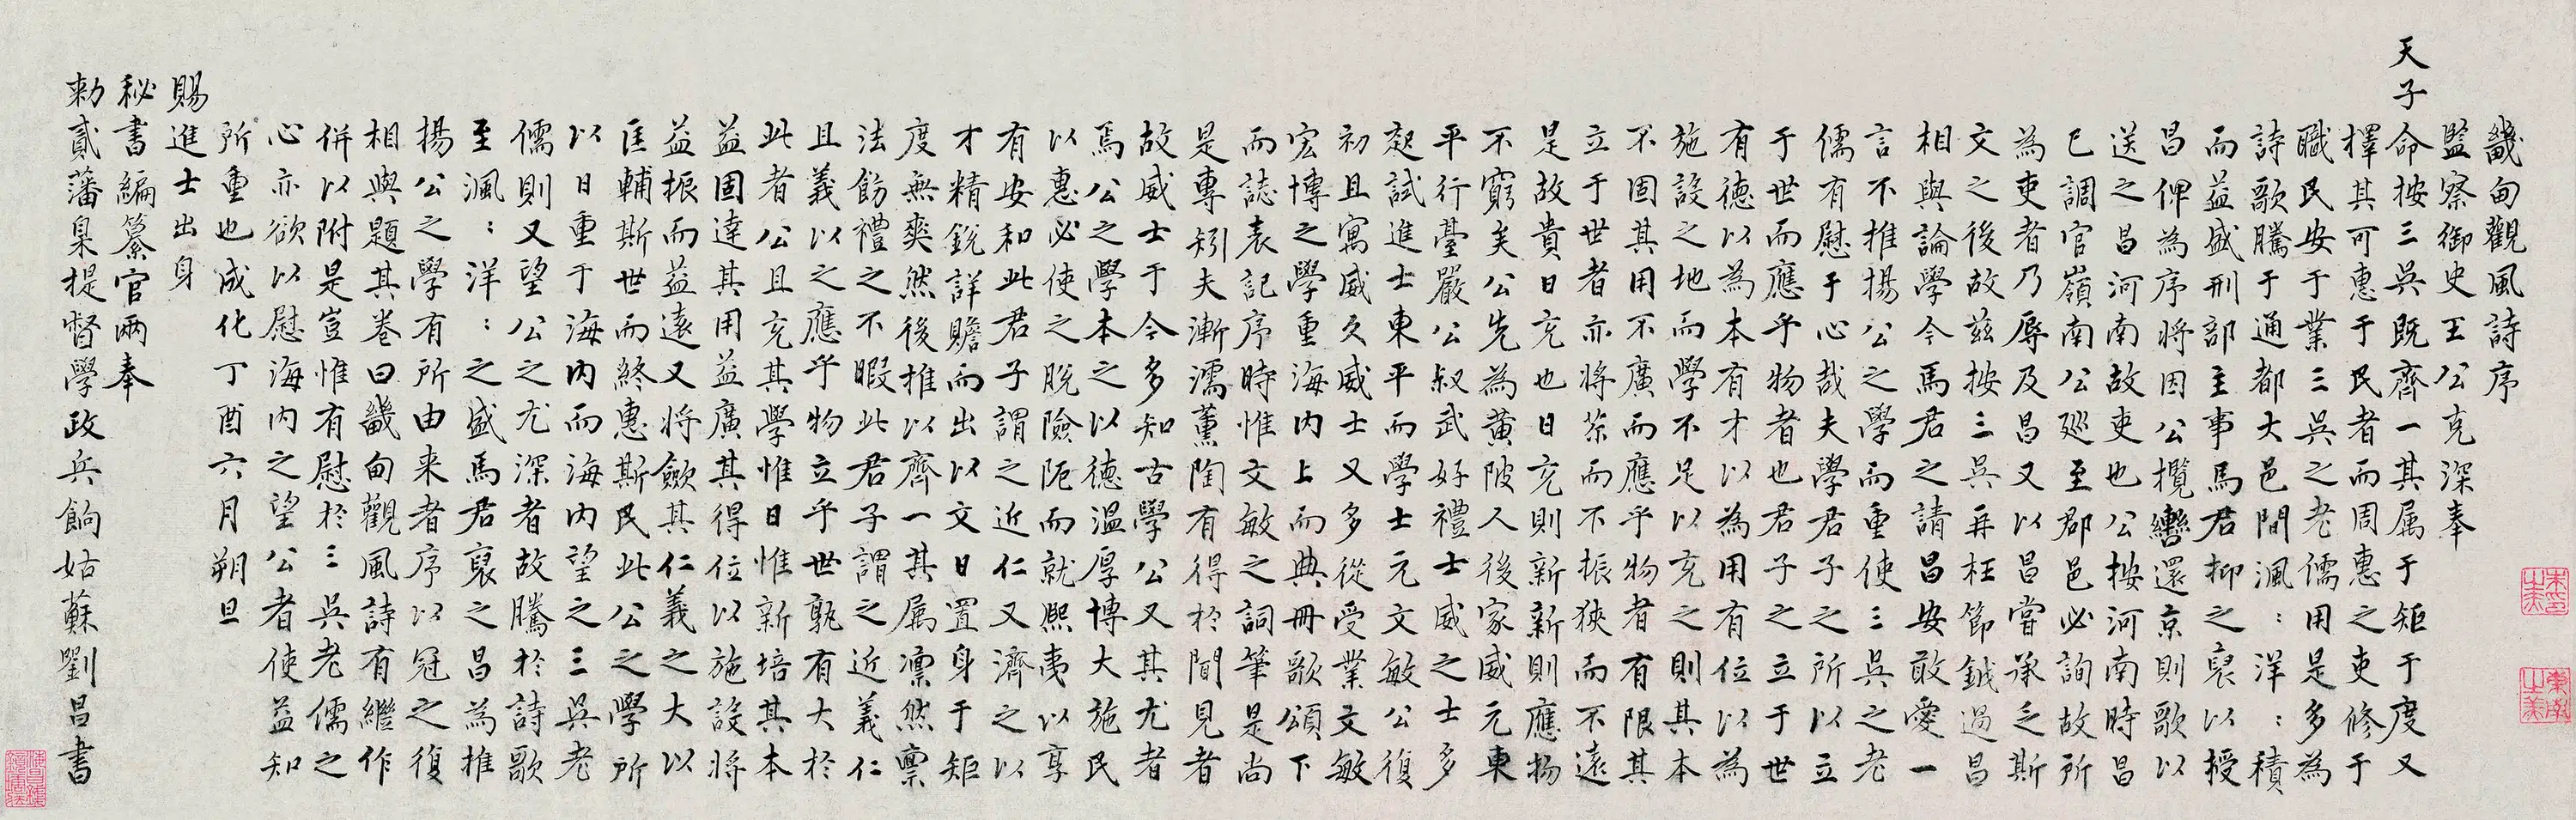 畿甸觀風詩序
監察御史王公克深奉
天子命按三吳既齊一其属于矩于度又
擇其可惠于民者而周惠之吏修于
職民安于業三吳之老儒用是多為
詩歌騰于通都大邑間渢：洋：積
而益盛刑部主事馬君抑之裒以授
昌俾為序將因公攬轡還京則歌以
送之昌河南故吏也公按河南時昌
已調官嶺南公廵至郡邑必詢故所
為吏者乃辱及昌又以昌嘗承乏斯
文之後故茲按三吳再枉節鉞過昌
相與論學今馬君之請昌安敢愛一
言不推揚公之學而重使三吳之老
儒有慰于心哉夫學君子之所以立
于世而應乎物者也君子之立于世
有德以為本有才以為用有位以為
施設之地而學不足以充之則其本
不固其用不廣而應乎物者有限其
立于世者亦將茶而不振狹而不遠
是故貴日充也日充則新新則應物
不窮矣公先為黄陂人後家威元東
平行臺嚴公叔武好禮士威之士多
起試進士東平而學士元文敏公復
初且寓威久威士又多從受業文敏
宏博之學重海内上而典冊歌頌下
而誌表記序時惟文敏之詞筆是尚
是專矧夫漸濡薰陶有得於間見者
故威士于今多知古學公又其尤者
焉公之學本之以德溫厚博大施民
以惠必使之脱險阨而就熙夷以享
有安和此君子謂之近仁又濟之以
才精銳詳贍而出以文日置身于矩
度無爽然後推以齊一其属凛然禀
法飭禮之不暇此君子謂之近義仁
且義以之應乎物立乎世孰有大於
此者公且充其學惟日惟新培其本
益固達其用益廣其得位以施設將
益振而益遠又將斂其仁義之大以
匡輔斯世而終惠斯民此公之學所
以日重于海内而海内望之三吳老
儒則又望公之尤深者故騰於詩歌
至渢：洋：之盛馬君裒之昌為推
揚公之學有所由来者序以冠之復
相與題其卷曰畿甸觀風詩有繼作
併以附是豈惟有慰於三吳老儒之
心亦欲以慰海内之望公者使益知
所重也成化丁酉六月朔旦
賜進士出身
秘書編纂官兩奉
勅貳藩臬提督學政兵餉姑蘇劉昌書